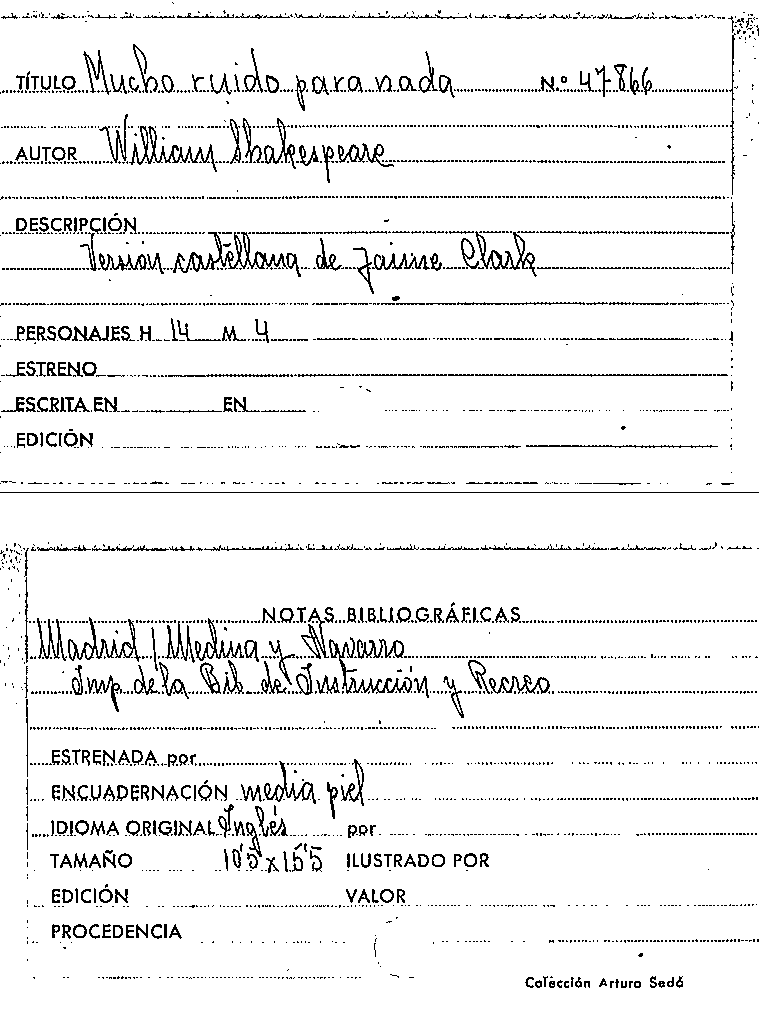 TÍTULO Mucho ruido para nada N.º 47866
AUTOR William Shakespeare
DESCRIPCIÓN
Versión castellana de Jaime Clark
PERSONAJES H 14 M 4
ESTRENO
ESCRITA EN EN
EDICIÓN
NOTAS BIBLIOGRÁFICAS
Madrid / Medina y Navarro
Imp de la Bib de Instrucción y Recreo
ESTRENADA por
ENCUADERNACIÓN media piel
IDIOMA ORIGINAL Inglés por
TAMAÑO 10'5 x 15'5 ILUSTRADO POR
EDICIÓN VALOR
PROCEDENCIA
Colección Arturo Sedó